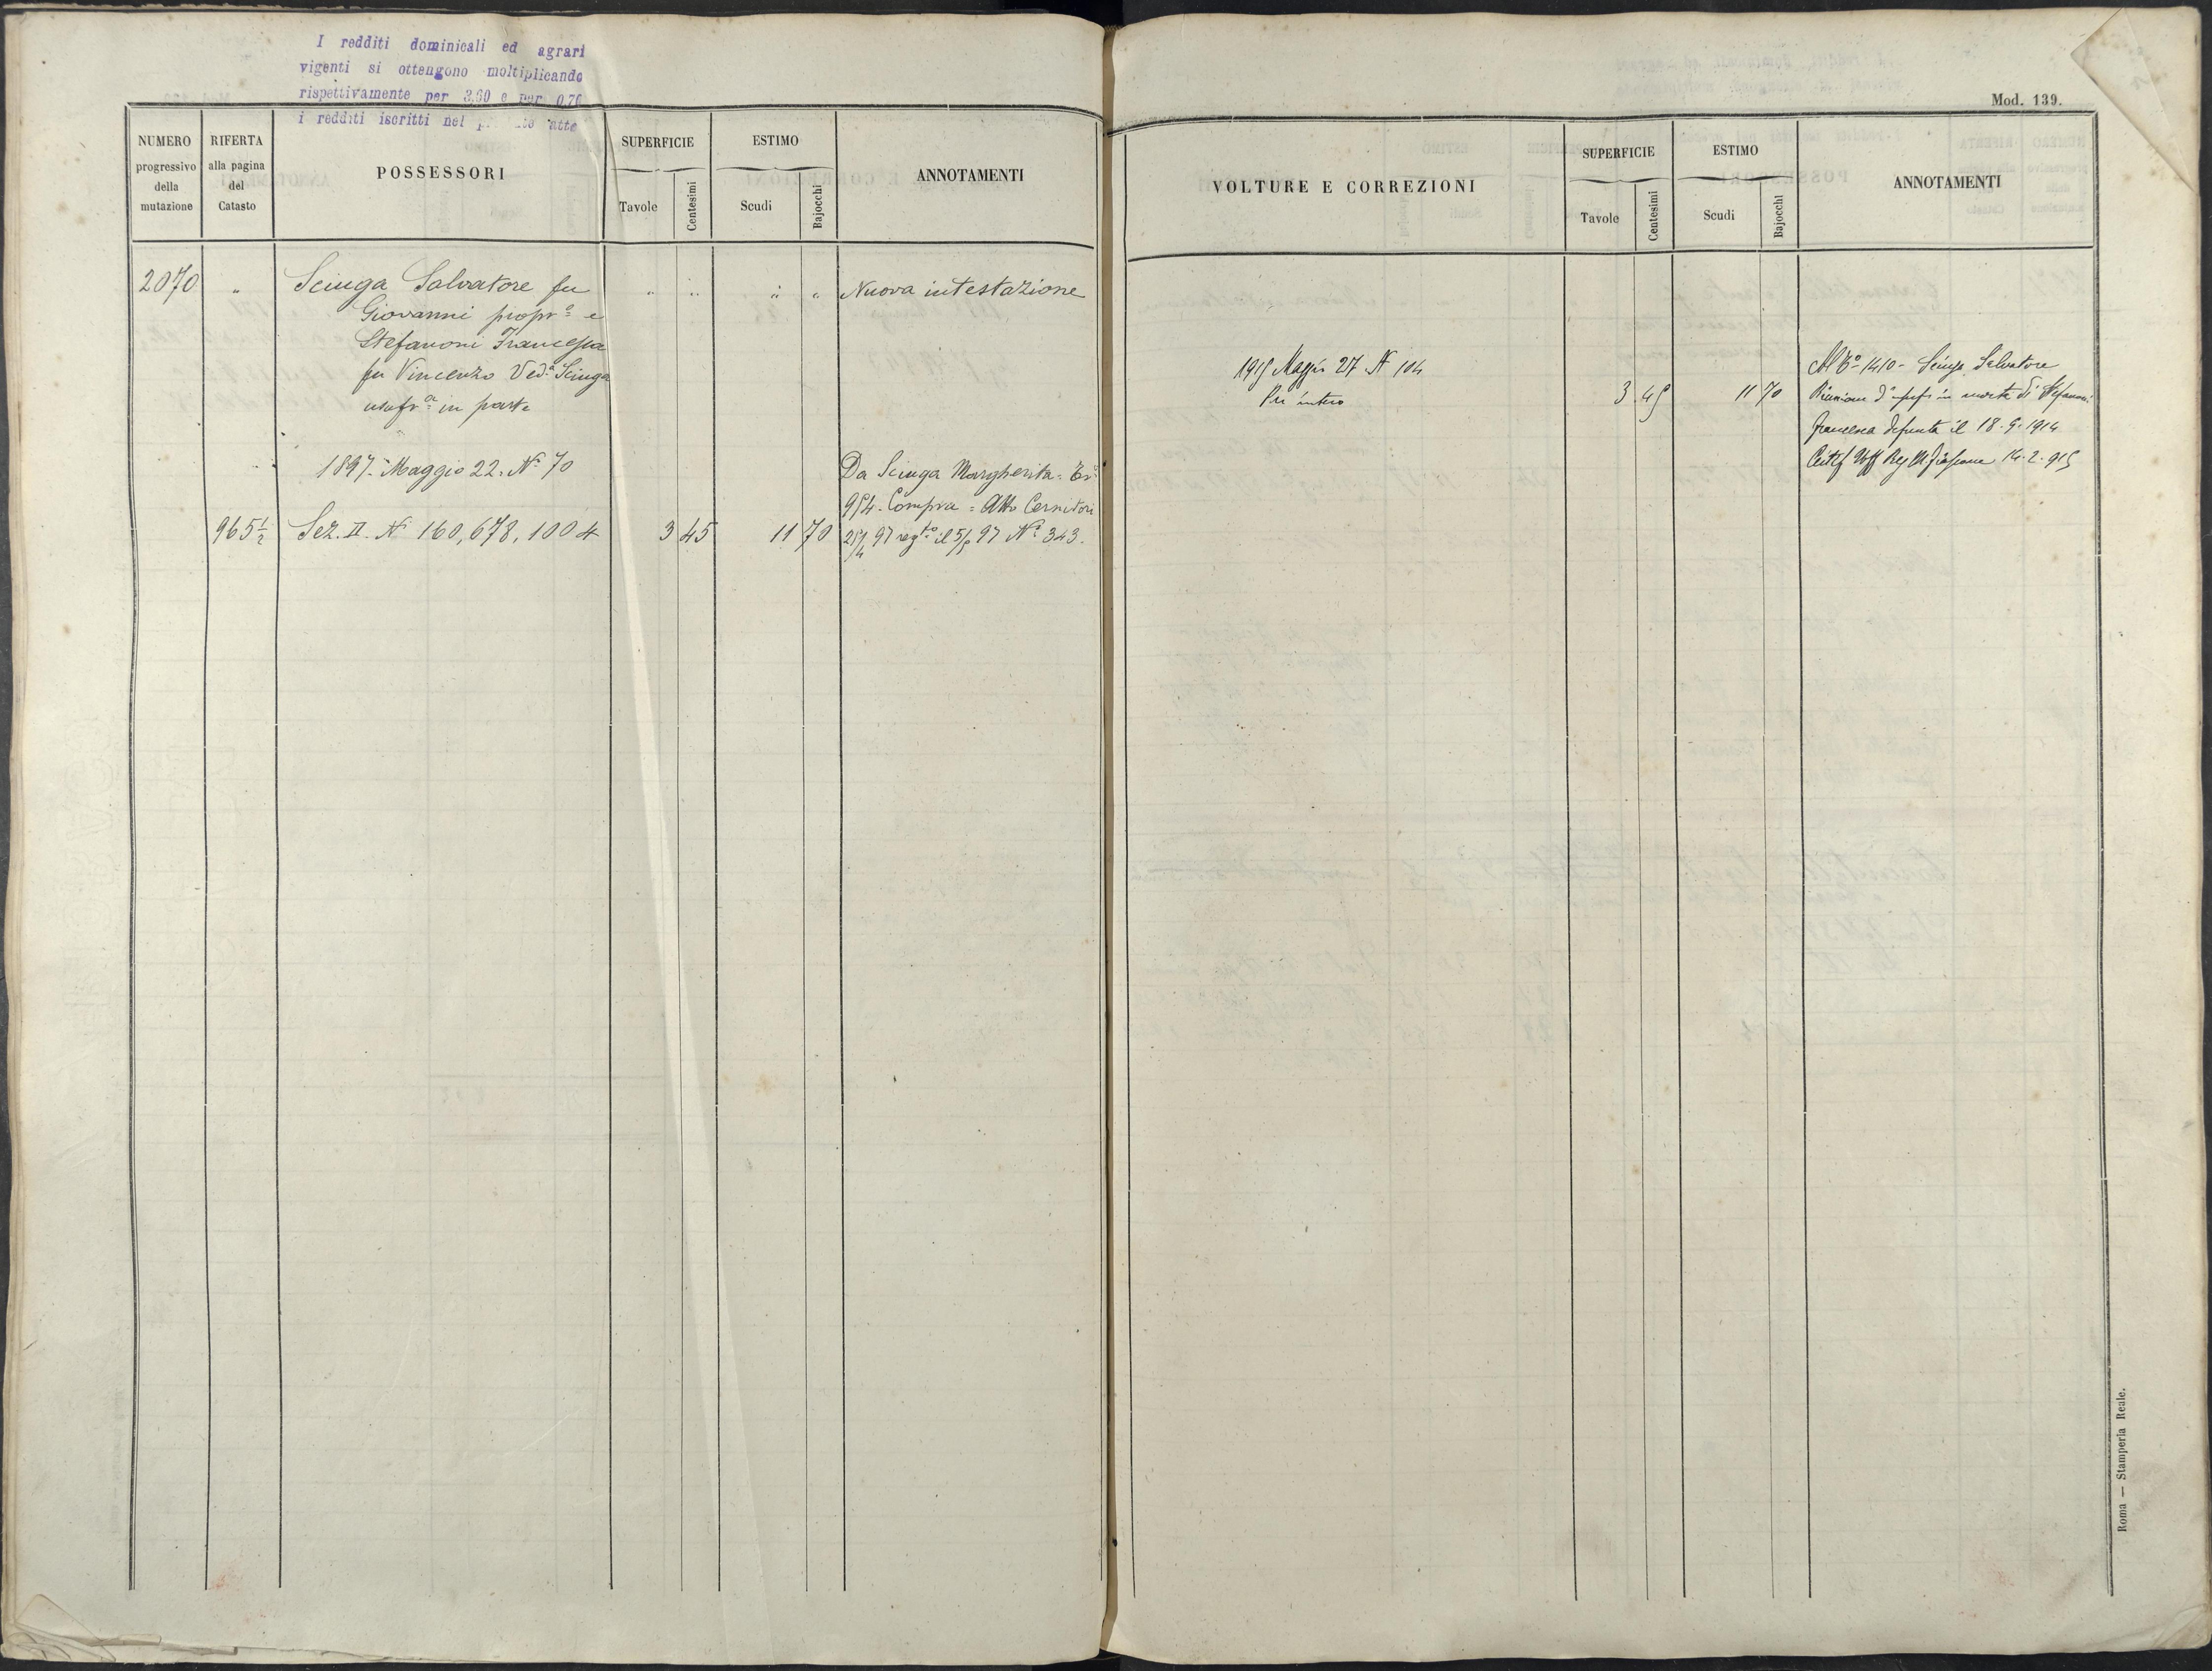 I redditi dominicali ed agrari
vigenti si ottengono moltiplicando
rispettivamente per 3,60 e per 0,70
i redditi iscritti nel atte
NUMERO
progressivo
della
mutazione
RIFERTA
alla pagina
del
Catasto
POSSESSORI
SUPERFICIE
Tavole
Centesimi
ESTIMO
Scudi
Bajocchi
ANNOTAMENTI
2070 " Sciuga Salvatore fu " " " " Nuova intestazione
Giovanni propr.º e
Stefanoni Francesca
fu Vincenzo Ved.ª Sciuga
usufr.ª in parte
1897. Maggio 22. Nº 70 Da Sciuga Margherita =
954. Compra = Atto Cernitori
965½ Sez. II. Nº 160, 678, 1004 3 45 11 70 25/4 97 reg.to il 5/5 97 Nº 343.
Mod. 139.
VOLTURE E CORREZIONI
SUPERFICIE
Tavole
Centesimi
ESTIMO
Scudi
Bajocchi
ANNOTAMENTI
1915 Maggio 27 N 104
Per intero 3 45 11 70
Al 1410 - Sciuga Salvatore
Riunione d' usuf. in morte di Stefanoni
Francesca defunta il 18. 9. 1914
Certif Uff Reg 14. 2. 915
Roma — Stamperia Reale.